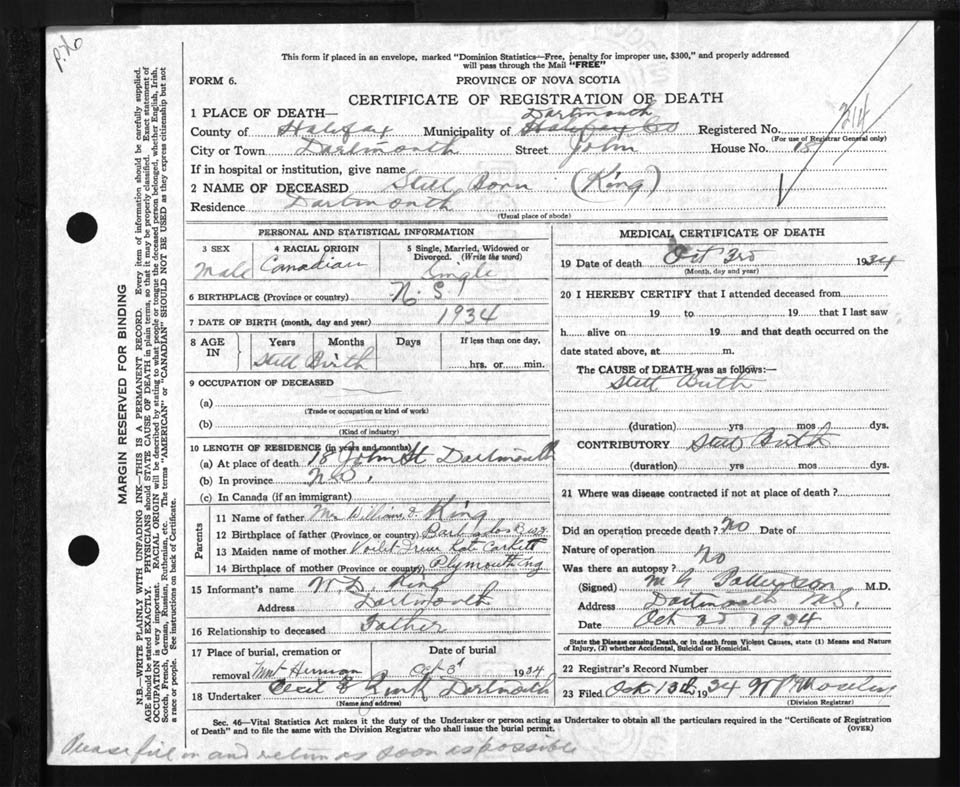 P.X6
This form if placed in an envelope, marked "Dominion Statistics—Free, penalty for improper use, $300," and properly addressed
will pass through the Mail "FREE"
FORM 6.
PROVINCE OF NOVA SCOTIA
CERTIFICATE OF REGISTRATION OF DEATH
214
1 PLACE OF DEATH—
Dartmouth
County of Halifax Municipality of Halifax Co Registered No.
(For use of Registrar General only)
City or Town Dartmouth Street John House No. 18
If in hospital or institution, give name
2 NAME OF DECEASED Still Born (King)
Residence Dartmouth
(Usual place of abode)
PERSONAL AND STATISTICAL INFORMATION
3 SEX 4 RACIAL ORIGIN 5 Single, Married, Widowed or
Divorced. (Write the word)
Male Canadian Single
6 BIRTHPLACE (Province or country) N. S.
7 DATE OF BIRTH (month, day and year) 1934
8 AGE IN Years Months Days If less than one day,
Still Birth hrs. or min.
9 OCCUPATION OF DECEASED
(a)
(Trade or occupation or kind of work)
(b)
(Kind of industry)
10 LENGTH OF RESIDENCE (in years and months)
(a) At place of death 18 John St Dartmouth
(b) In province N.S.
(c) In Canada (if an immigrant)
Parents
11 Name of father Mr William D. King
12 Birthplace of father (Province or country) Barbados B.W.I
13 Maiden name of mother Voilet Kate
14 Birthplace of mother (Province or country) Plymouth Eng
15 Informant's name W. D. King
Address Dartmouth
16 Relationship to deceased Father
17 Place of burial, cremation or
removal Mnt Herman
Date of burial
Oct 3d 1934
18 Undertaker Cecil E Zink Dartmouth
(Name and address)
MEDICAL CERTIFICATE OF DEATH
19 Date of death Oct 3rd 1934
(Month, day and year)
20 I HEREBY CERTIFY that I attended deceased from
19 to 19 that I last saw
h alive on 19 and that death occurred on the
date stated above, at m.
The CAUSE of DEATH was as follows:—
Still Birth
(duration) yrs mos dys.
CONTRIBUTORY Still Birth
(duration) yrs mos dys.
21 Where was disease contracted if not at place of death?
Did an operation precede death? No Date of
Nature of operation
Was there an autopsy? No
(Signed) M.D.
Address Dartmouth N.S.
Date Oct 3d 1934
State the Disease causing Death, or in death from Violent Causes, state (1) Means and Nature
of Injury, (2) whether Accidental, Suicidal or Homicidal.
22 Registrar's Record Number
23 Filed Oct 13th 1934
(Division Registrar)
Sec. 46—Vital Statistics Act makes it the duty of the Undertaker or person acting as Undertaker to obtain all the particulars required in the "Certificate of Registration
of Death" and to file the same with the Division Registrar who shall issue the burial permit.
(OVER)
Please fill in and return as soon as possible
MARGIN RESERVED FOR BINDING
N.B.—WRITE PLAINLY WITH UNFADING INK—THIS IS A PERMANENT RECORD. Every item of information should be carefully supplied.
AGE should be stated EXACTLY. PHYSICIANS should STATE CAUSE OF DEATH in plain terms, so that it may be properly classified. Exact statement of
OCCUPATION is very important. RACIAL ORIGIN will be described by stating to what people or tongue the deceased person belonged, whether English, Irish,
Scotch, French, German, Russian, Ruthenian, etc. The terms "AMERICAN" or "CANADIAN" SHOULD NOT BE USED as they express citizenship but not
a race or people. See instructions on back of Certificate.